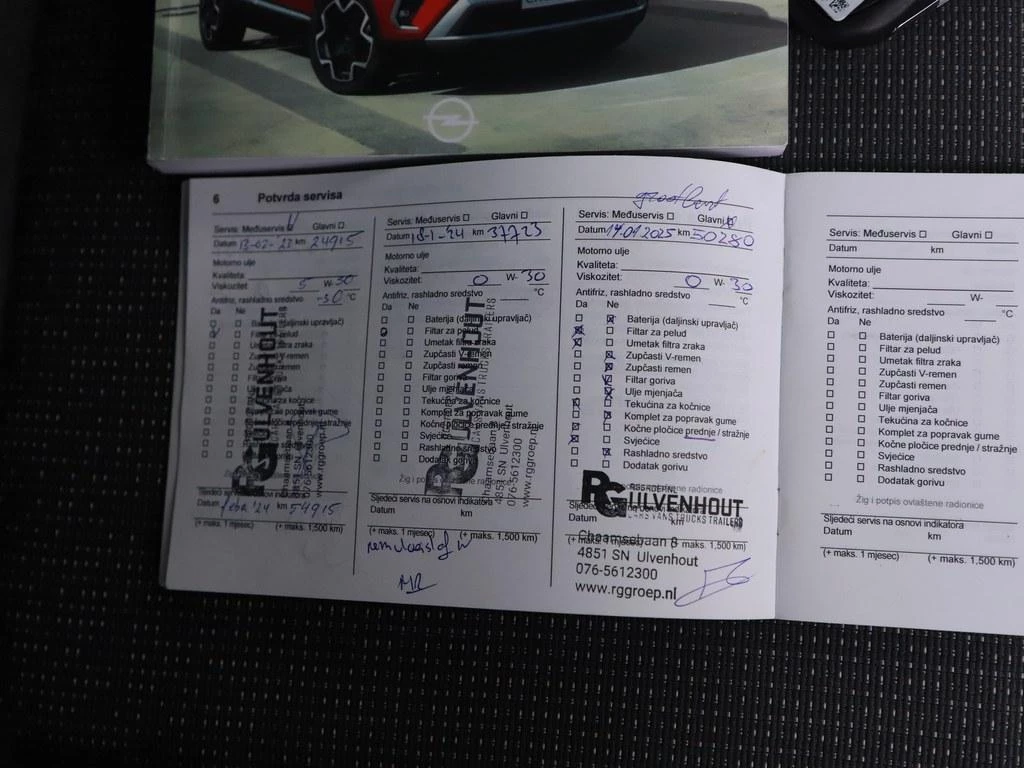 6 Potvrda servisa
Servis: Međuservis Glavni
Datum 13-02-23 km 24915
Motorno ulje
Kvaliteta:
Viskozitet: 5 W-30
Antifriz, rashladno sredstvo -30 °C
Da Ne
Baterija (daljinski upravljač)
Filtar za pelud
Umetak filtra zraka
Zupčasti V-remen
Zupčasti remen
Filtar goriva
Ulje mjenjača
Tekućina za kočnice
Komplet za popravak gume
Kočne pločice prednje / stražnje
Svjećice
RG ULVENHOUT
Chaamsebaan 8
4851 SN Ulvenhout
076-5612300
www.rggroep.nl
Sljedeći servis na osnovi indikatora
Datum febr '24 km 54915
(+ maks. 1 mjesec) (+ maks. 1,500 km)
Servis: Međuservis Glavni
Datum 18-1-24 km 37723
Motorno ulje
Kvaliteta:
Viskozitet: 0 W-30
Antifriz, rashladno sredstvo °C
Da Ne
Baterija (daljinski upravljač)
Filtar za pelud
Umetak filtra zraka
Zupčasti V-remen
Zupčasti remen
Filtar goriva
Ulje mjenjača
Tekućina za kočnice
Komplet za popravak gume
Kočne pločice prednje / stražnje
Svjećice
Rashladno sredstvo
Dodatak gorivu
RG ULVENHOUT
CARS VANS TRUCKS TRAILERS
Chaamsebaan 8
4851 SN Ulvenhout
076-5612300
www.rggroep.nl
Sljedeći servis na osnovi indikatora
Datum km
(+ maks. 1,500 km)
groot beurt
Servis: Međuservis Glavni
Datum 14.01.2025 km 50280
Motorno ulje
Kvaliteta:
Viskozitet: 0 W-30
Antifriz, rashladno sredstvo °C
Da Ne
Baterija (daljinski upravljač)
Filtar za pelud
Umetak filtra zraka
Zupčasti V-remen
Zupčasti remen
Filtar goriva
Ulje mjenjača
Tekućina za kočnice
Komplet za popravak gume
Kočne pločice prednje / stražnje
Svjećice
Rashladno sredstvo
Dodatak gorivu
RGGROEP.NL
RG ULVENHOUT
CARS VANS TRUCKS TRAILERS
Datum km
(+ maks. 1 mjesec) (+ maks. 1,500 km)
Chaamsebaan 8
4851 SN Ulvenhout
076-5612300
www.rggroep.nl
Servis: Međuservis Glavni
Datum km
Motorno ulje
Kvaliteta:
Viskozitet: W-
Antifriz, rashladno sredstvo °C
Da Ne
Baterija (daljinski upravljač)
Filtar za pelud
Umetak filtra zraka
Zupčasti V-remen
Zupčasti remen
Filtar goriva
Ulje mjenjača
Tekućina za kočnice
Komplet za popravak gume
Kočne pločice prednje / stražnje
Svjećice
Rashladno sredstvo
Dodatak gorivu
Žig i potpis ovlaštene radionice
Sljedeći servis na osnovi indikatora
Datum km
(+ maks. 1 mjesec) (+ maks. 1,500 km)